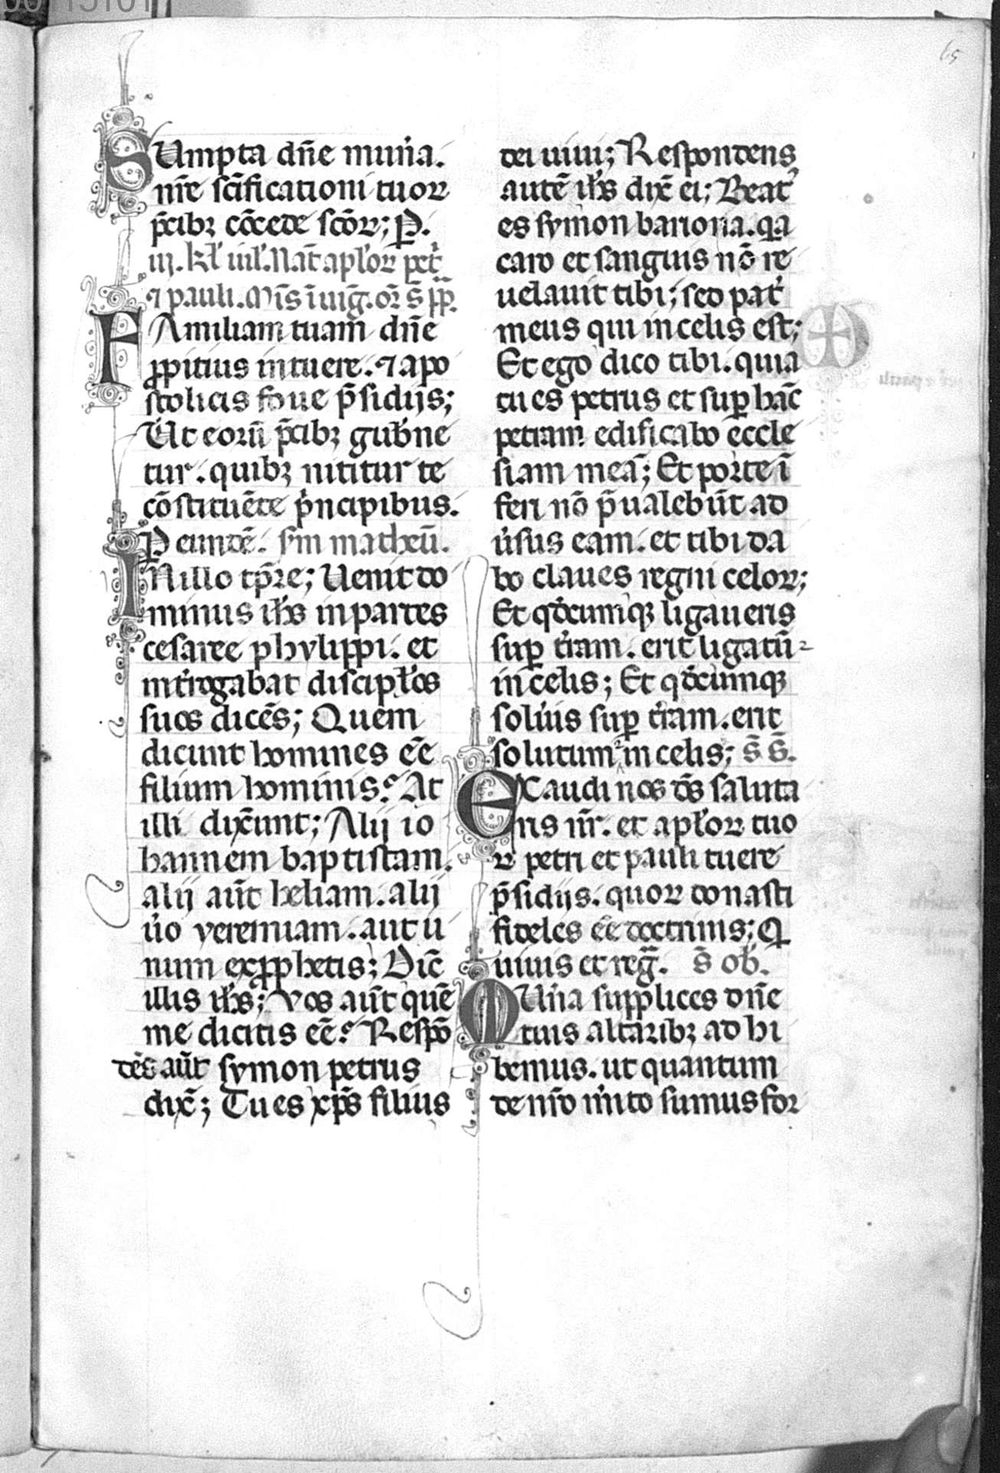 65
SUmpta dn̄e mun̄ia.
nr̄e scīficationi tuoꝝ
p̄cibꝫ cōcede scōꝝ; P.
iij. kl̄ iul̄. Nat̄ apl̄oꝝ pet̄
⁊ pauli. Mis̄ ī uiḡ. or̄ s̄ pp̄.
FAmiliam tuam dn̄e
ꝓpitius intuere. ⁊ apo
stolicis foue p̄sidijs;
Ut eorū p̄cibꝫ gub̄ne
tur. quibꝫ nititur te
cōstituēte p̄ncipibus.
P eundē. sm̄ matheū.
INillo tp̄re; Uenit do
minus ih̄s in partes
cesaree phylippi. et
int̄rogabat discipl̄os
suos dicēs; Quem
dicunt homines eē
filium hominis? At
illi dix̄unt; Alij io
hannem baptistam.
alij aūt heliam. alij
ūo yeremiam. aut u
num ex ꝓphetis; Dic̄
illis ih̄s; Vos aūt quē
me dicitis eē? Respō
dēs aūt symon petrus
dix̄; Tu es xp̄s filius
dei uiui; Respondens
autē ih̄s dix̄ ei; Beat᾽
es symon bariona. qa
caro et sanguis nō re
uelauit tibi; sed pat̄
meus qui in celis est;
Et ego dico tibi. quia
tu es petrus et suꝑ hāc
petram edificabo eccle
siam meā; Et porte ī
feri nō p̄ualebūt ad
ūsus eam. et tibi da
bo claues regni celoꝝ;
Et qd̄cumqꝫ ligaueris
suꝑ t̄ram. erit ligatū
in celis; Et qd̄cumqꝫ
solūis suꝑ t̄ram. erit
solutum in celis; s̄ s̄.
EXaudi nos ds̄ saluta
ris nr̄. et apl̄oꝝ tuo
ꝝ petri et pauli tuere
p̄sidijs. quoꝝ donasti
fideles eē doctrinis; Q
uiuis et reḡ. s̄ ob̄.
MUn̄a supplices dn̄e
tuis altaribꝫ ad hi
bemus. ut quantum
de nr̄o m̄ito sumus for